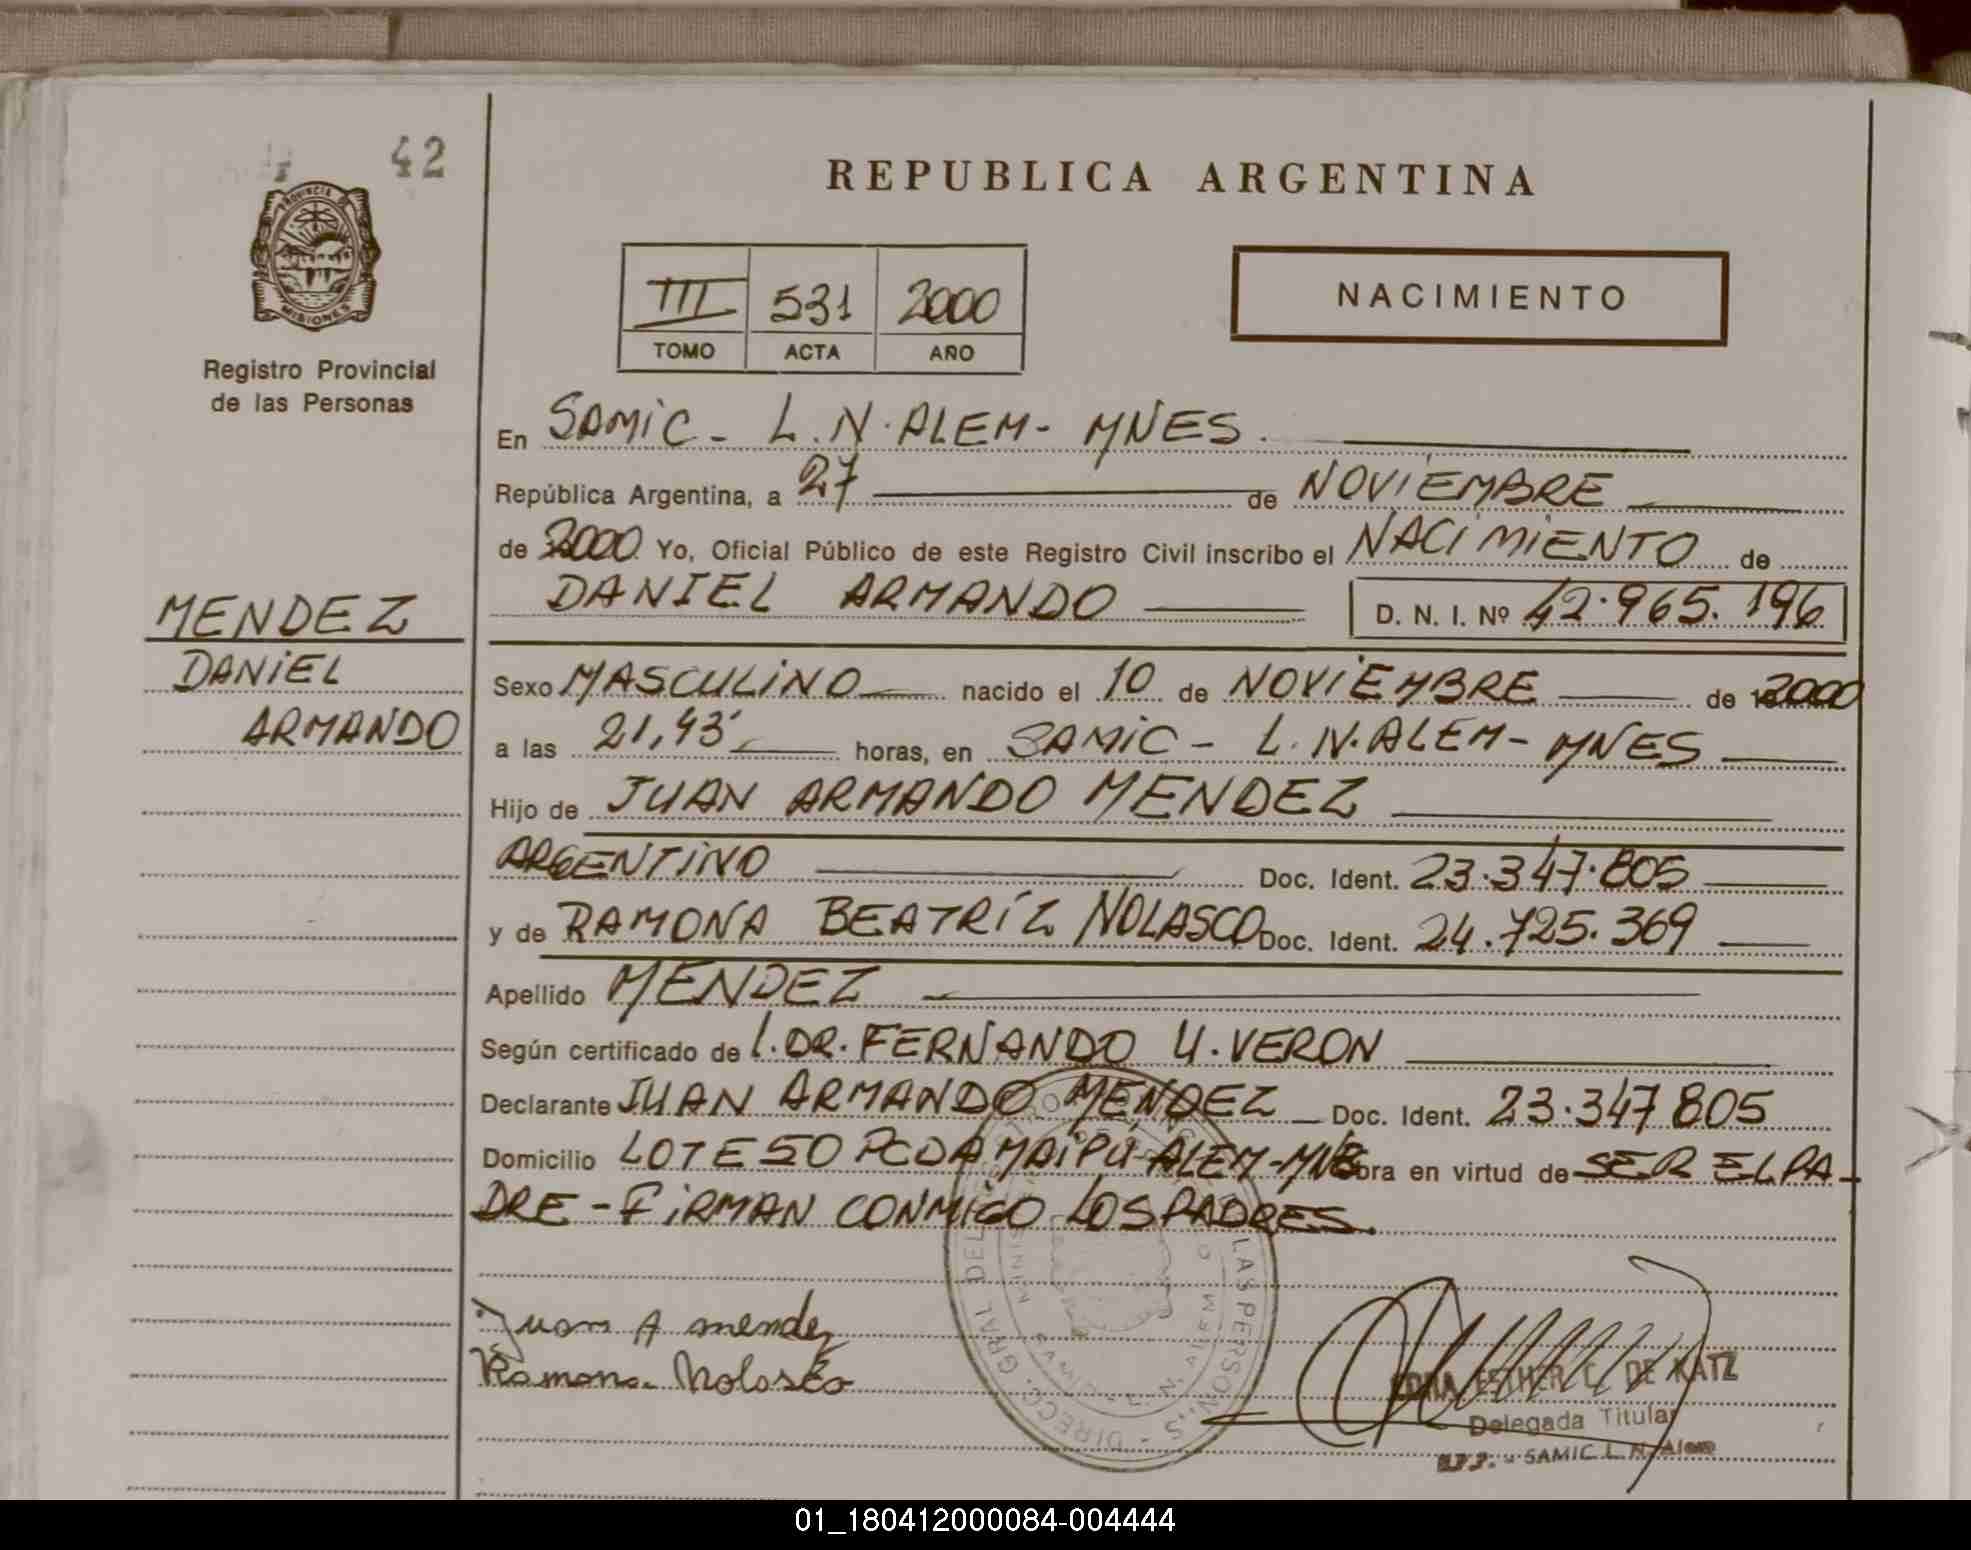 42
REPUBLICA ARGENTINA
PROVINCIA DE
MISIONES
Registro Provincial
de las Personas
III 531 2000
TOMO ACTA AÑO
NACIMIENTO
En SAMiC - L.N. ALEM - MNES.
República Argentina, a 27 de NOViEMBRE
de 2000. Yo, Oficial Público de este Registro Civil inscribo el NACiMiENTO de
DANIEL ARMANDO D. N. I. Nº 42.965.196
MENDEZ
DANiEL
ARMANDO
Sexo MASCULiNO nacido el 10 de NOViEMBRE de 2000
a las 21,43' horas, en SAMiC - L.N. ALEM - MNES
Hijo de JUAN ARMANDO MENDEZ
ARGENTiNO Doc. Ident. 23.347.805
y de RAMONA BEATRiZ NOLASCO Doc. Ident. 24.725.369
Apellido MENDEZ
Según certificado de l. DR. FERNANDO U. VERON
Declarante JUAN ARMANDO MENDEZ Doc. Ident. 23.347 805
Domicilio LOTE 50 PCDA MAiPU-ALEM-MNES obra en virtud de SER EL PA-
DRE - FiRMAN CONMiGO LOS PADRES.
Juan A mendez
Ramona Nolasco
DIRECC. GRAL DEL LAS PERSONAS
L. N. ALEM
EDRA. ESTHER C. DE KATZ
Delegada Titular
SAMIC L. N. Alem
01_180412000084-004444